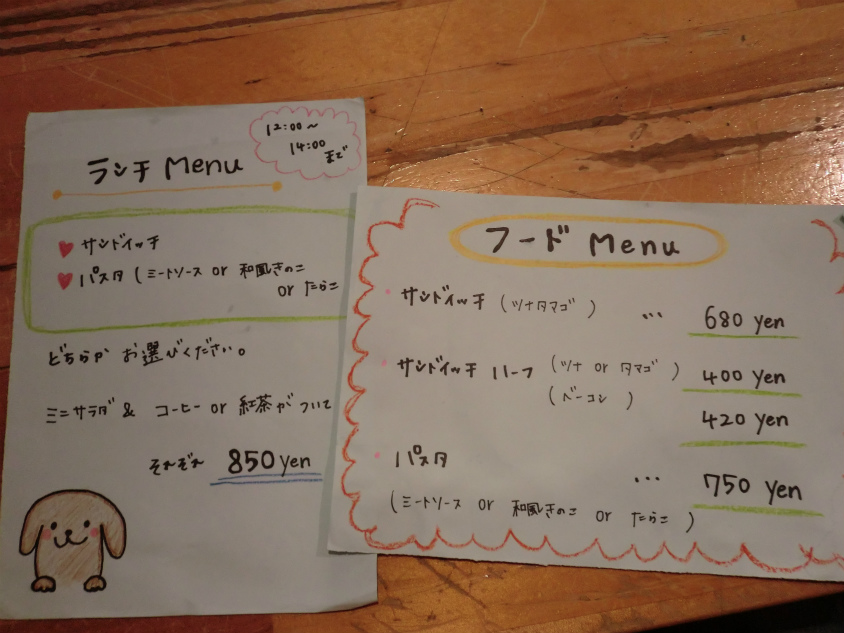 12:00〜
14:00
まで
ランチ Menu
サンドイッチ
パスタ (ミートソース or 和風きのこ
or たらこ
どちらか お選びください。
ミニサラダ & コーヒー or 紅茶がついて
それぞれ 850 yen
フード Menu
サンドイッチ (ツナタマゴ) ... 680 yen
サンドイッチ ハーフ (ツナ or タマゴ) 400 yen
(ベーコン) 420 yen
パスタ ... 750 yen
(ミートソース or 和風きのこ or たらこ)